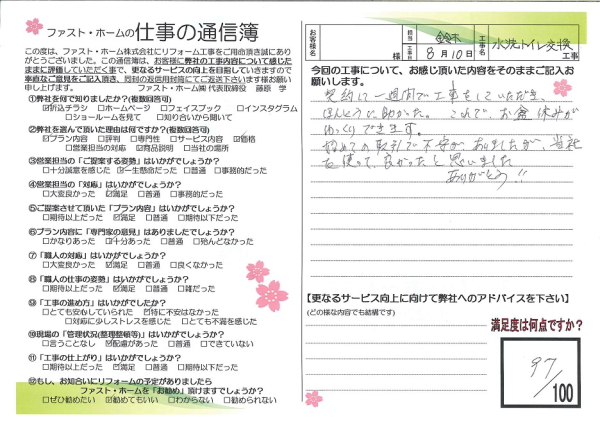 ファスト・ホームの仕事の通信簿
この度は、ファスト・ホーム株式会社にリフォーム工事をご用命頂き誠にあり
がとうございました。この通信簿は、お客様に弊社の工事内容について感じた
ままに評価していただく事で、更なるサービスの向上を目指していきますので
率直なご意見をご記入頂き、同封の返信用封筒にてご返送下さいます様お願い
申し上げます。 ファスト・ホーム㈱ 代表取締役 藤原 学
①弊社を何で知りましたか?(複数回答可)
☑折込チラシ □ホームページ □フェイスブック □インスタグラム
□ショールームを見て □知り合いから聞いて
②弊社を選んで頂いた理由は何ですか?(複数回答可)
☑プラン内容 □評判 □専門性 □サービス内容 ☑価格
□営業担当の対応 ☑商品説明 □当社の場所
③営業担当の「ご提案する姿勢」はいかがでしょうか?
□十分誠意を感じた ☑一生懸命だった □普通 □事務的だった
④営業担当の「対応」はいかがでしょうか?
□大変良かった ☑満足 □普通 □事務的だった
⑤ご提案させて頂いた「プラン内容」はいかがでしょうか?
□期待以上だった ☑満足 □普通 □期待以下だった
⑥プラン内容に「専門家の意見」はありましたでしょうか?
□かなりあった ☑十分あった □普通 □殆んどなかった
⑦「職人の対応」はいかがでしょうか?
□大変良かった ☑満足 □普通 □良くなかった
⑧「職人の仕事の姿勢」はいかがでしょうか?
□期待以上だった ☑満足 □普通 □雑だった
⑨「工事の進め方」はいかがでしょうか?
□とても安心していられた ☑特に不安はなかった
□対応に少しストレスを感じた □とても不満を感じた
⑩現場の「管理状況(整理整頓等)」はいかがでしょうか?
□言うことなし ☑配慮があった □普通 □できていない
⑪「工事の仕上がり」はいかがでしょうか?
□期待以上だった ☑満足 □普通 □期待以下だった
⑫もし、お知合いにリフォームの予定がありましたら
ファスト・ホームを「お勧め」頂けますでしょうか?
□ぜひ勧めたい ☑勧めてもいい □わからない □勧められない
お客様名 様
担当 鈴木
工事日 8月10日
工事名 水洗トイレ交換 工事
今回の工事について、お感じ頂いた内容をそのままご記入お
願いします。
契約に一週間で工事をしていただき、
ほんとうに助かった。これで、お盆休みが
ゆっくりできます。
初めての取引で不安が、ありましたが、当社
を使って、良かったと思いました
ありがとう!!
【更なるサービス向上に向けて弊社へのアドバイスを下さい】
(どの様な内容でも結構です)
満足度は何点ですか?
97/100